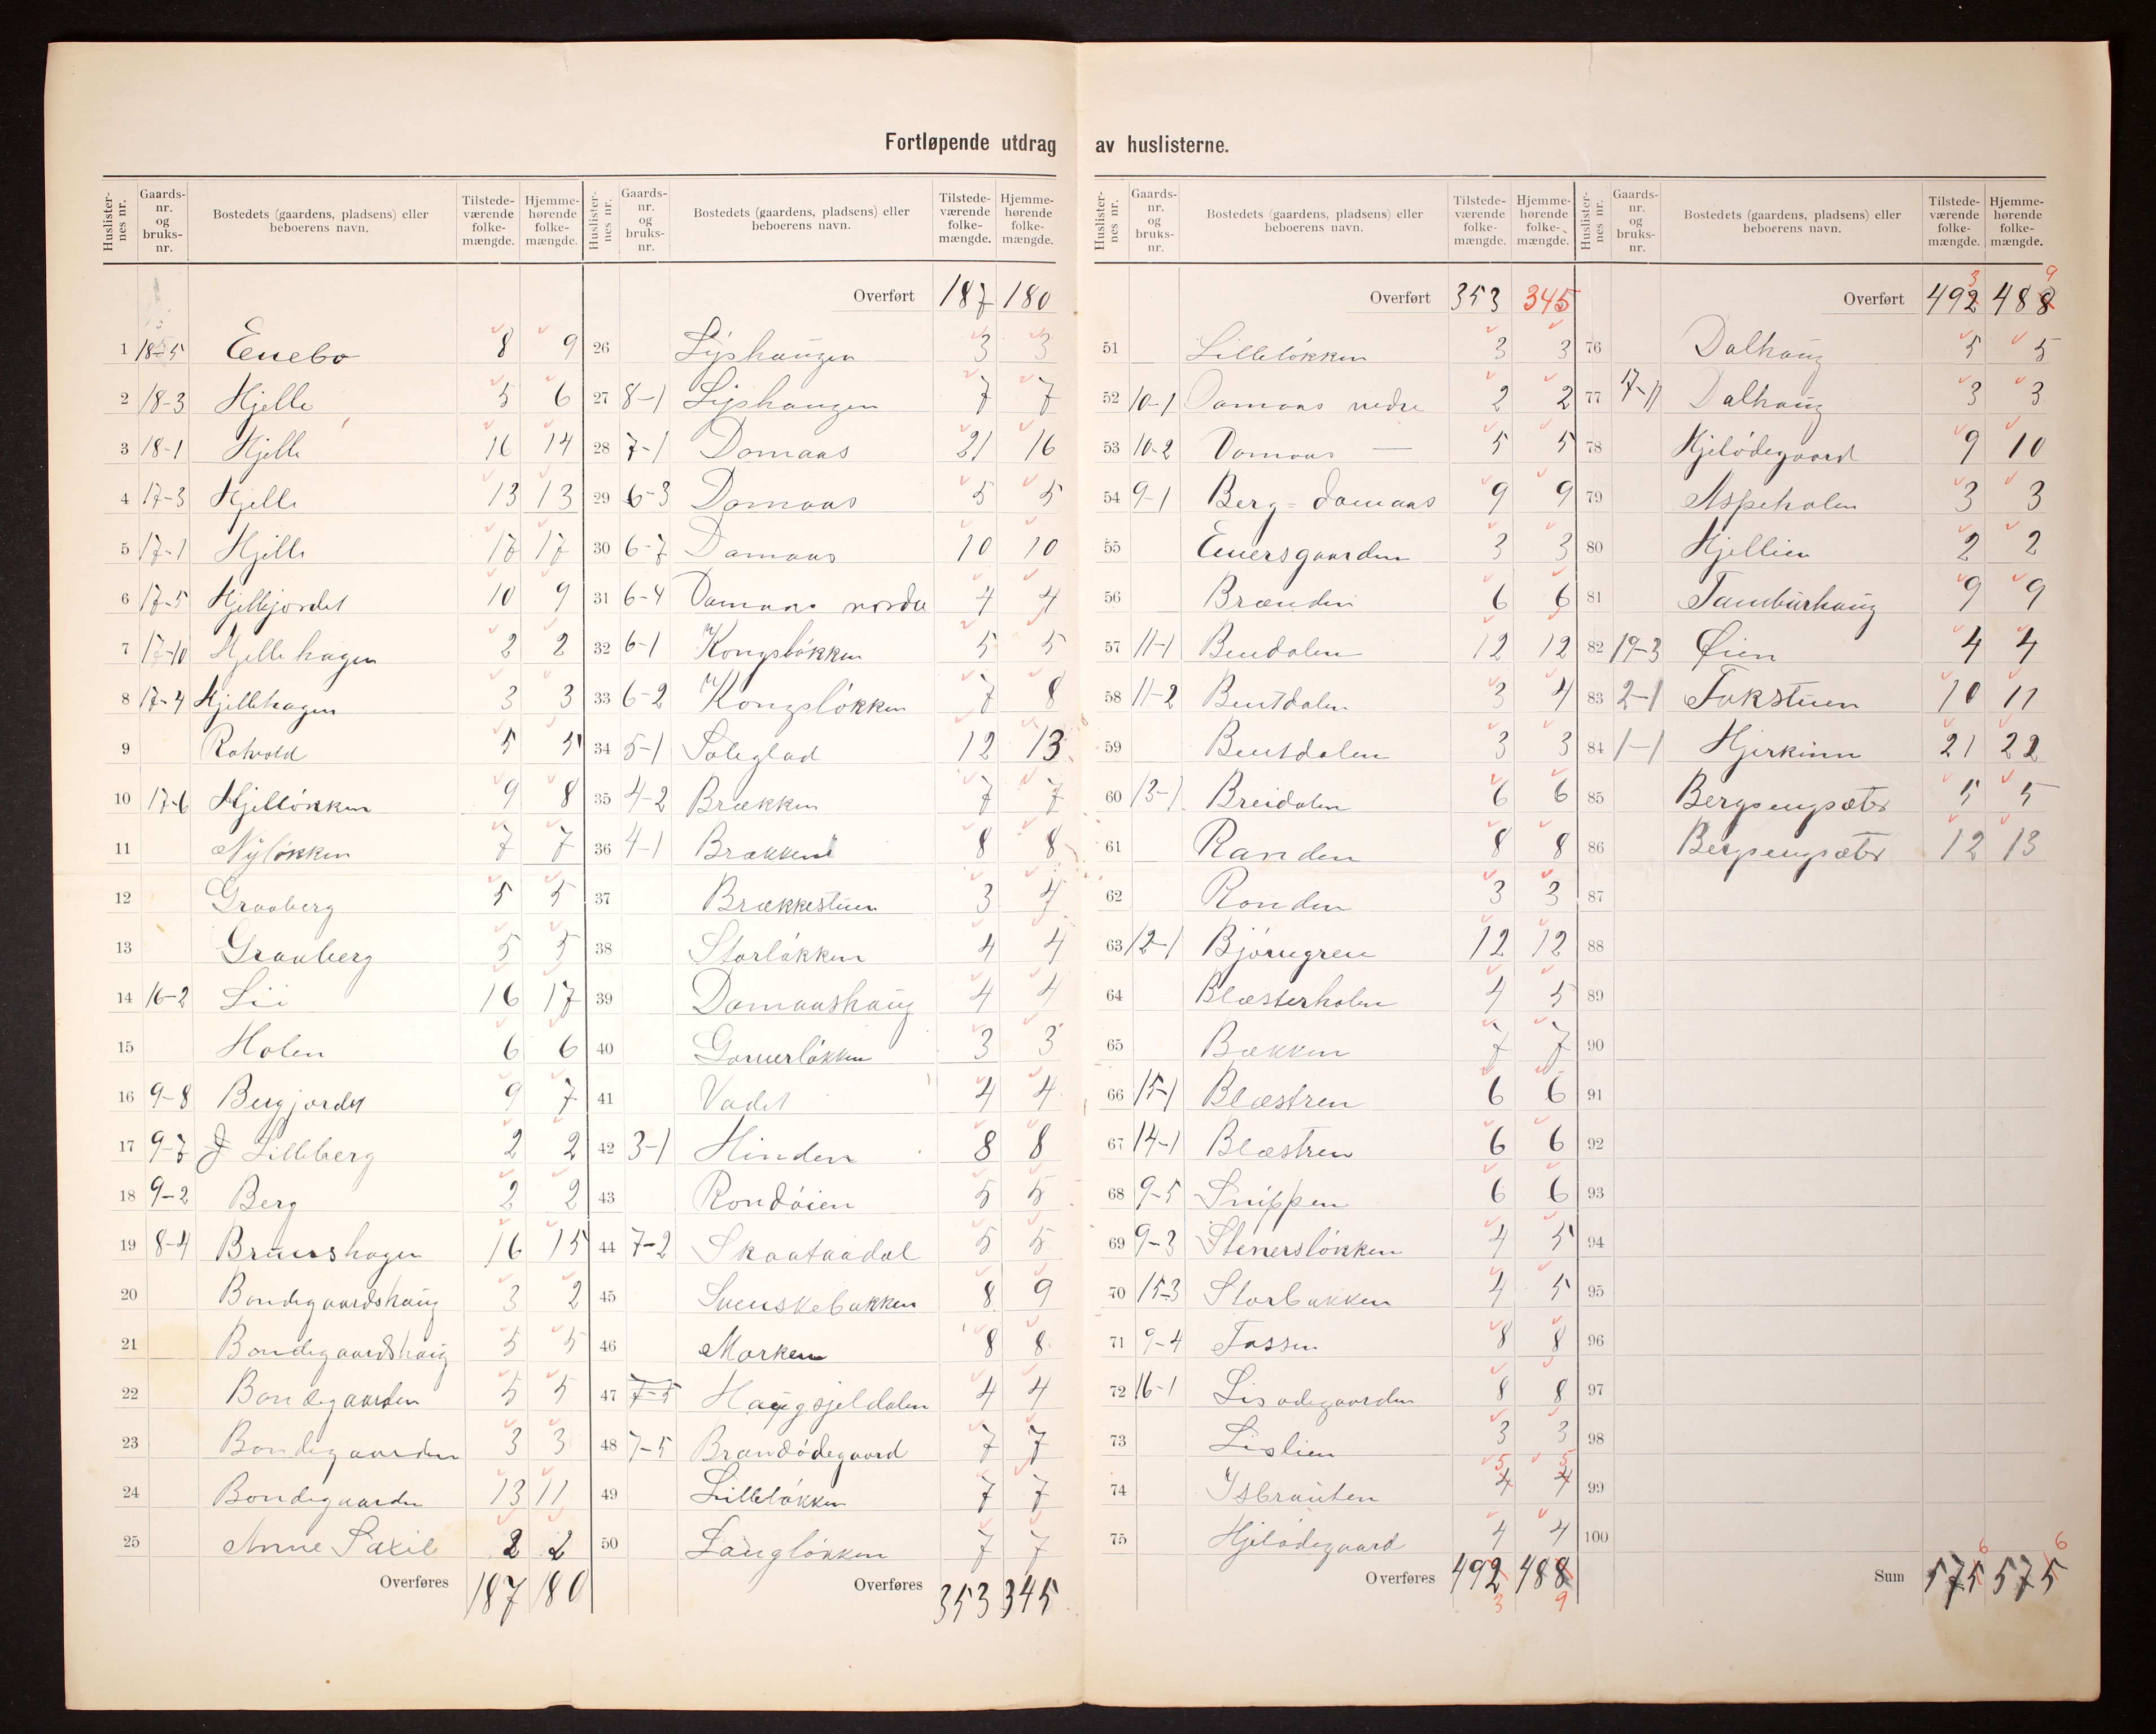 Fortløpende utdrag av huslisterne.
Huslister-nes nr. Gaards-nr. og bruks-nr. Bostedets (gaardens, pladsens) eller beboerens navn. Tilstede-værende folke-mængde. Hjemme-hørende folke-mængde.
1 18-5 Enebo 8 9
2 18-3 Hjelle 5 6
3 18-1 Hjelle 16 14
4 17-3 Hjelle 13 13
5 17-1 Hjelle 17 17
6 17-5 Hjellejordet 10 9
7 17-10 Hjellehagen 2 2
8 17-4 Hjellehagen 3 3
9 Rotvold 5 5
10 17-6 Hjelløkken 9 8
11 Nyløkken 7 7
12 Graaberg 5 5
13 Graaberg 5 5
14 16-2 Lii 16 17
15 Holen 6 6
16 9-8 Bergjordet 9 7
17 9-7 Lilleberg 2 2
18 9-2 Berg 2 2
19 8-4 Bruushagen 16 15
20 Bondegaardshaug 3 2
21 Bondegaardshaug 5 5
22 Bondegaarden 5 5
23 Bondegaarden 3 3
24 Bondegaarden 13 11
25 Anne 2 2
Overføres 187 180
Huslister-nes nr. Gaards-nr. og bruks-nr. Bostedets (gaardens, pladsens) eller beboerens navn. Tilstede-værende folke-mængde. Hjemme-hørende folke-mængde.
Overført 187 180
26 Lyshaugen 3 3
27 8-1 Lyshaugen 7 7
28 7-1 Domaas 21 16
29 6-3 Domaas 5 5
30 6-7 Domaas 10 10
31 6-4 Domaas nordre 4 4
32 6-1 Kongsløkken 5 5
33 6-2 Kongsløkken 7 8
34 5-1 Soleglad 12 13
35 4-2 Brækken 7 7
36 4-1 Brækken 8 8
37 Brækkestuen 3 4
38 Storløkken 4 4
39 Domaashaug 4 4
40 3 3
41 Vadet 4 4
42 3-1 Hinden 8 8
43 Rondøien 5 5
44 7-2 Skaataadal 5 5
45 Svenskebakken 8 9
46 Morken 8 8
47 7-5 Haugsjeldalen 4 4
48 7-5 Brandødegaard 7 7
49 Lilleløkken 7 7
50 Laugløkken 7 7
Overføres 353 345
Huslister-nes nr. Gaards-nr. og bruks-nr. Bostedets (gaardens, pladsens) eller beboerens navn. Tilstede-værende folke-mængde. Hjemme-hørende folke-mængde.
Overført 353 345
51 Lilleløkken 3 3
52 10-1 Domaas nedre 2 2
53 10-2 Domaas — 5 5
54 9-1 Berg-domaas 9 9
55 Enersgaarden 3 3
56 Brænden 6 6
57 11-1 Bendalen 12 12
58 11-2 Bentdalen 3 4
59 Bentdalen 3 3
60 13-1 Breidalen 6 6
61 Randen 8 8
62 Randen 3 3
63 12-1 Bjørngren 12 12
64 Blæsterholen 4 5
65 Bækken 7 7
66 15-1 Blæstren 6 6
67 14-1 Blæstren 6 6
68 9-5 Snippen 6 6
69 9-3 Stenersløkken 4 5
70 15-3 Storbakken 4 5
71 9-4 Fossen 8 8
72 16-1 Lisødegaarden 8 8
73 Lislien 3 3
74 Ysbrauten 4 5 4 5
75 Hjelødegaard 4 4
Overføres 492 3 488 9
Huslister-nes nr. Gaards-nr. og bruks-nr. Bostedets (gaardens, pladsens) eller beboerens navn. Tilstede-værende folke-mængde. Hjemme-hørende folke-mængde.
Overført 492 3 488 9
76 Dalhaug 5 5
77 17-11 Dalhaug 3 3
78 Hjelødegaard 9 10
79 Aspeholen 3 3
80 Hjellien 2 2
81 Tamburhaug 9 9
82 19-3 Øien 4 4
83 2-1 Fokstuen 10 11
84 1-1 Hjerkinn 21 22
85 Bergsengsæter 5 5
86 Bergsengsæter 12 13
87
88
89
90
91
92
93
94
95
96
97
98
99
100
Sum 575 6 575 6